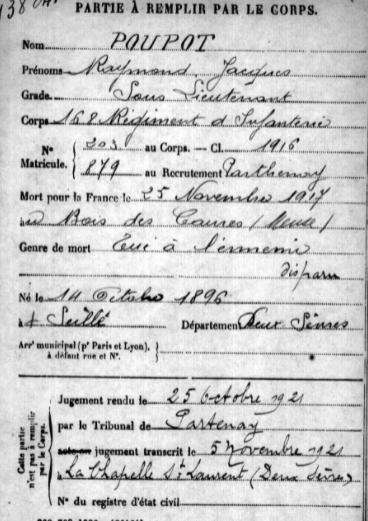 PARTIE À REMPLIR PAR LE CORPS.
Nom POUPOT
Prénoms Raymond Jacques
Grade Sous Lieutenant
Corps 168 Régiment d'Infanterie
N° 203 au Corps. — Cl. 1916
Matricule. 879 au Recrutement Parthenay
Mort pour la France le 25 Novembre 1917
au Bois des Caures (Meuse)
Genre de mort Tué à l'ennemi
disparu
Né le 14 Octobre 1896
à Département Deux Sèvres
Arrt municipal (pr Paris et Lyon),
à défaut rue et N°.
Cette partie n'est pas à remplir par le Corps.
Jugement rendu le 25 Octobre 1921
par le Tribunal de Partenay
acte ou jugement transcrit le 5 Novembre 1921
à La Chapelle St Laurent (Deux Sèvres)
N° du registre d'état civil